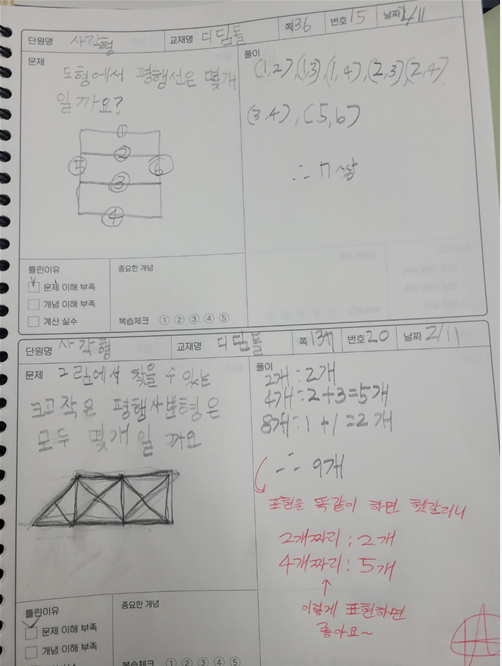 단원명 사각형 교재명 디딤돌 쪽 36 번호 15 날짜 2/11
문제
도형에서 평행선은 몇개
일까요?
①
②
⑤ ⑥
③
④
풀이
(1,2),(1,3)(1,4),(2,3)(2,4),
(3,4), (5,6)
∴ 7쌍
틀린이유
문제 이해 부족
개념 이해 부족
계산 실수
중요한 개념
복습체크 ① ② ③ ④ ⑤
단원명 사각형 교재명 디딤돌 쪽 137 번호 20 날짜 2/11
문제 그림에서 찾을 수 있는
크고 작은 평행사변형은
모두 몇개 일까요
풀이
2개 : 2개
4개 : 2+3=5개
8개 : 1+1=2개
∴ 9개
표현을 똑같이 하면 헷갈리니
2개짜리 : 2개
4개짜리 : 5개
↑
이렇게 표현하면
좋아요~
틀린이유
문제 이해 부족
개념 이해 부족
중요한 개념